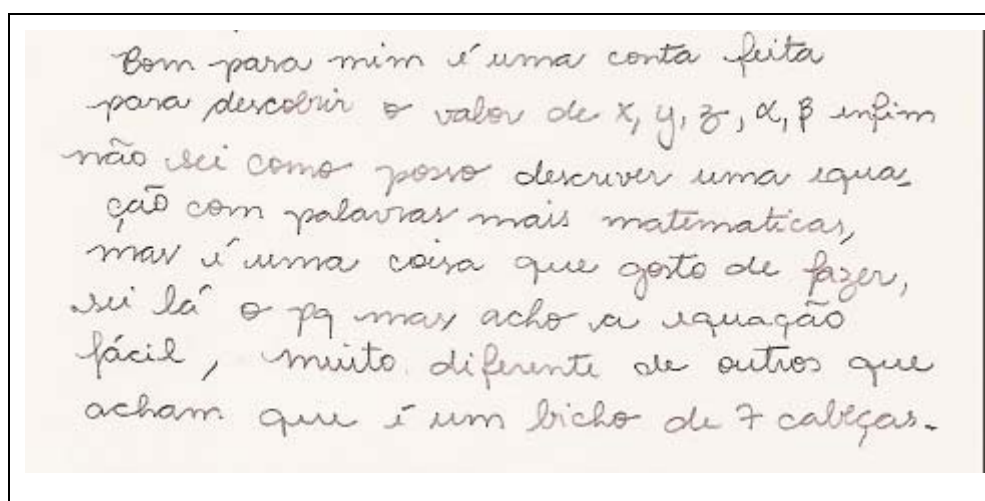 Bom para mim é uma conta feita
para descobrir o valor de x, y, z, α, β enfim
não sei como posso descrever uma equa_
ção com palavras mais matematicas,
mas é uma coisa que gosto de fazer,
sei lá o pq mas acho a equação
fácil, muito diferente de outros que
acham que é um bicho de 7 cabeças.